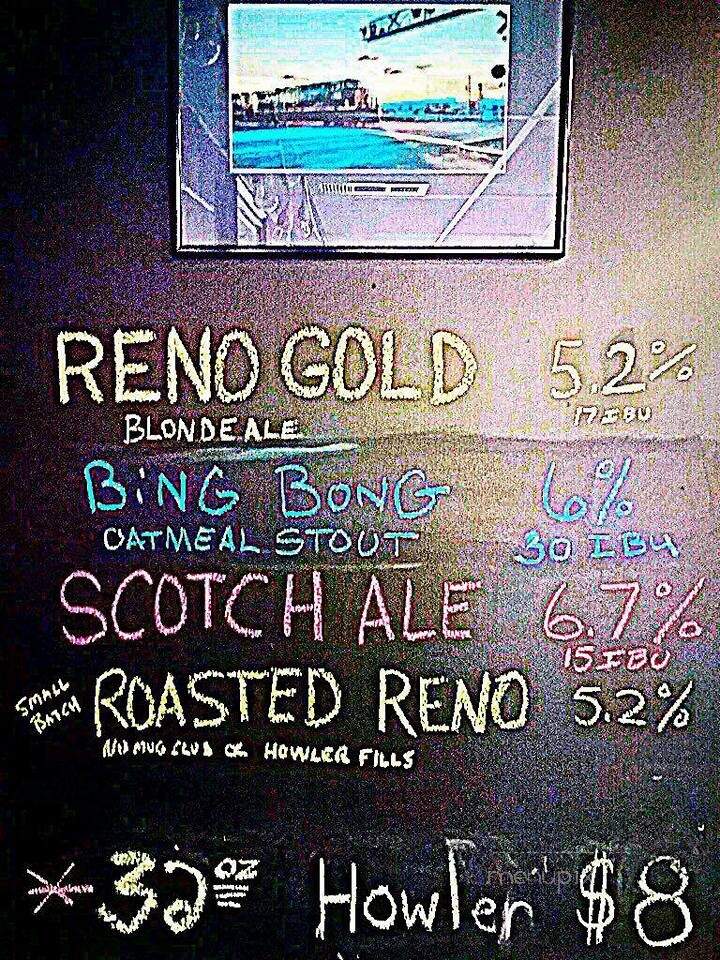 RENO GOLD 5.2%
17 IBU
BLONDE ALE
BiNG BONG 6%
OATMEAL STOUT 30 IBU
SCOTCH ALE 6.7%
15 IBU
SMALL BATCH ROASTED RENO 5.2%
NO MUG CLUB OR HOWLER FILLS
* 32 OZ Howler $8
menupix